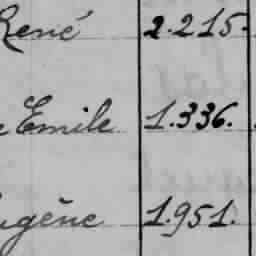 René 2.215.
e Emile 1.336.
ugène 1.951.